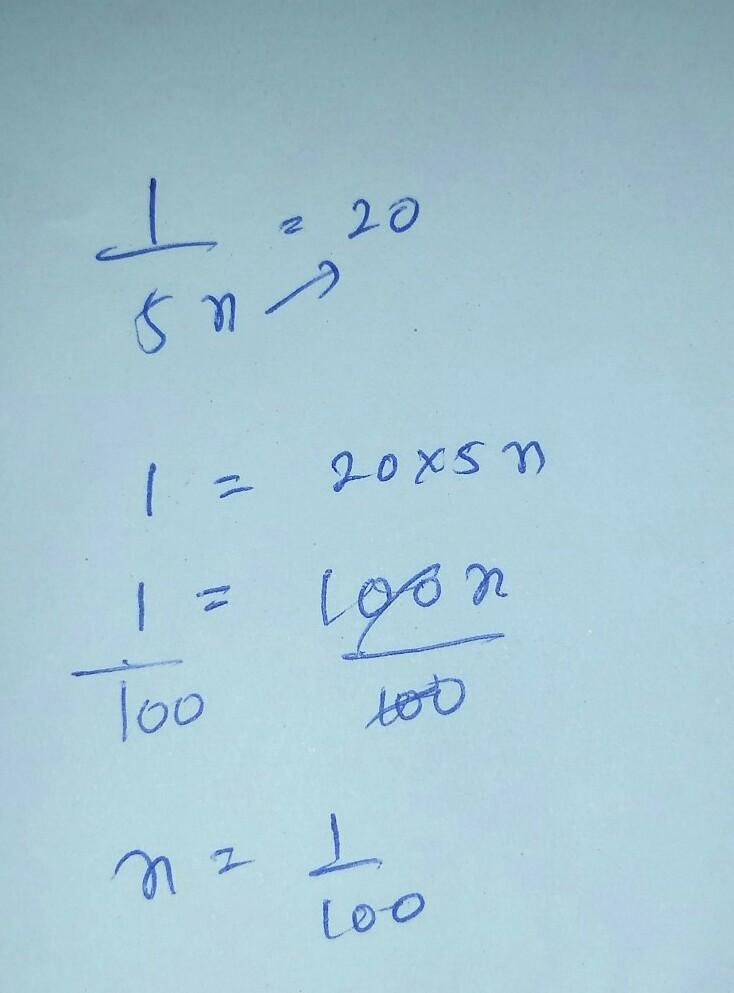 1/5n = 20
1 = 20x5n
1/100 = 100n/100
n = 1/100